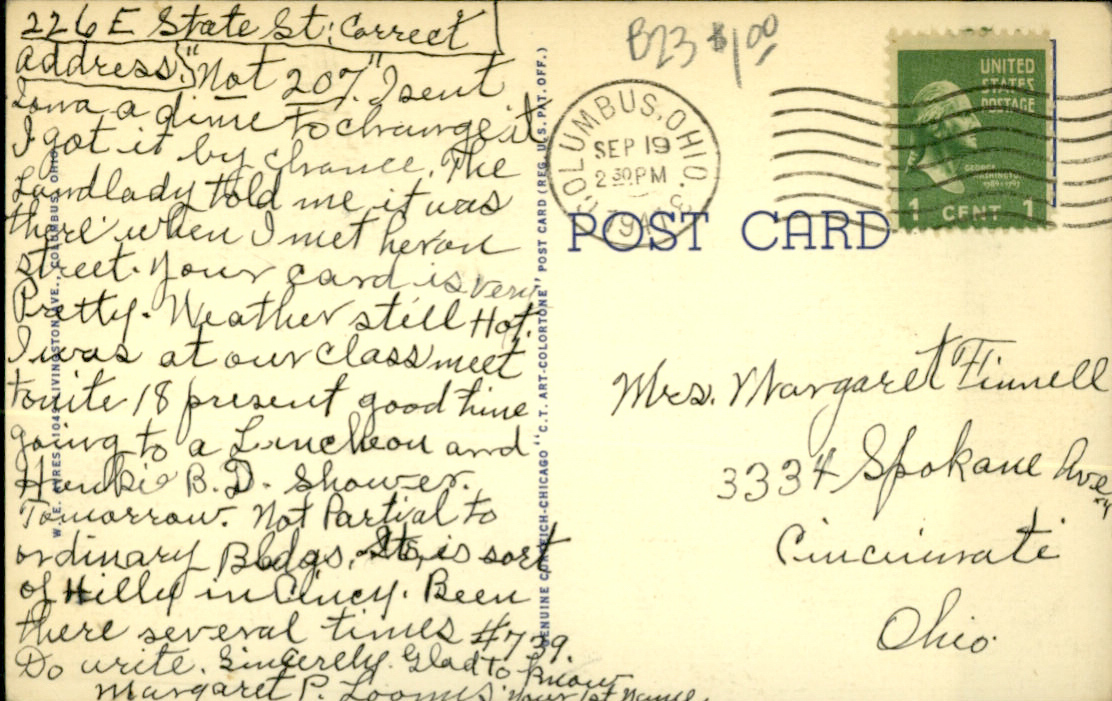 226 E State St; Correct
Address; "Not 207". I sent
Iowa a dime to change it
I got it by chance. The
Landlady told me it was
there when I met her on
street. Your card is very
Pretty. Weather still Hot.
I was at our class meet
tonite 18 present good time
going to a Luncheon and
Hunkie B.D. Shower.
Tomorrow. Not Partial to
ordinary Bldgs. Sts, is sort
of Hilly in Cincy. Been
there several times #739.
Do write. Sincerely. Glad to know
Margaret P. Loomis your 1st name.
W. E. AYRES, 1049 LIVINGSTON AVE., COLUMBUS, OHIO
GENUINE CURTEICH-CHICAGO "C. T. ART-COLORTONE" POST CARD (REG. U.S. PAT. OFF.)
B23 $1.00
COLUMBUS, OHIO.
SEP 19
2 30 PM
1948
UNITED
STATES
POSTAGE
GEORGE
WASHINGTON
1789-1797
1 CENT 1
POST CARD
Mrs. Margaret Finnell
3334 Spokane Ave
Cincinnati
Ohio.